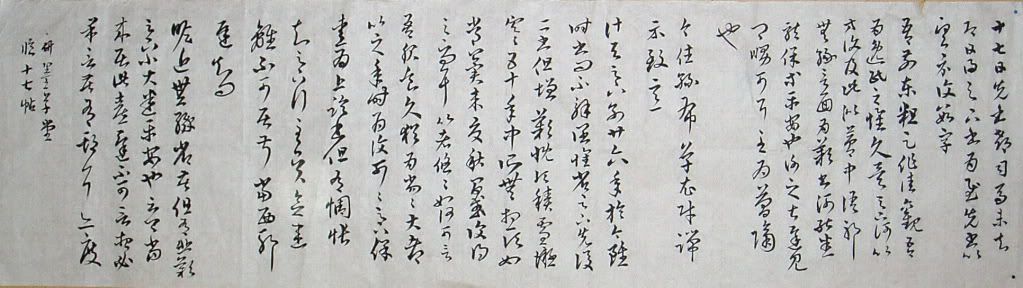 十七日先書郗司馬未去
即日得足下書為慰先書以
具示復數字
吾前東粗足作佳觀吾
為逸民之懷久矣足下何以
方復及此似夢中語耶
無緣言面為歎書何能悉
龍保等平安也謝之甚遲見
卿舅可耳至為簡隔
也
今往絲布單衣財一端
示致意
計與足下別廿六年於今雖
時書問不解闊懷省足下先後
二書但增歎慨頃積雪凝
寒五十年中所無想頃如
常冀來夏秋間或復得
足下問耳比者悠悠如何可言
吾服食久猶為劣劣大都
比之年時為復可可足下保
愛為上臨書但有惆悵
知足下行至吳念違
離不可居叔當西耶
遲知問
瞻近無緣省苦但有悲歎
足下小大悉平安也云卿當
來居此喜遲不可言想必
果言苦有期耳亦度
研墨草堂
臨十七帖